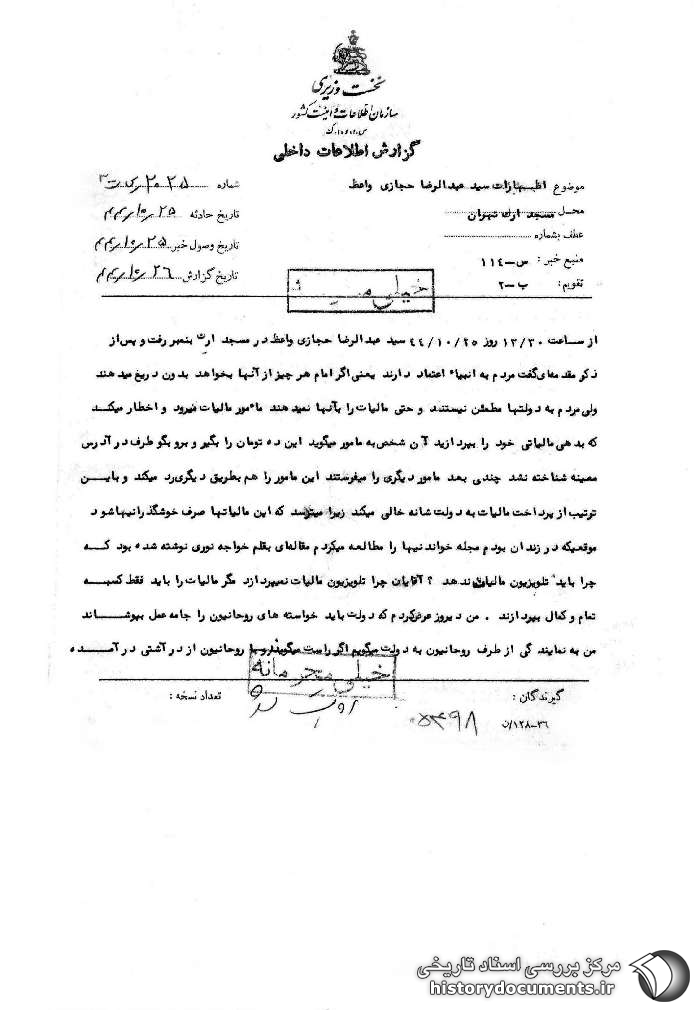 نخست وزیری
سازمان اطلاعات و امنیت کشور
س.ا.و.ا.ک
گزارش اطلاعات داخلی
موضوع اظهارات سید عبدالرضا حجازی واعظ
محل مسجد ارک تهران
عطف بشماره
منبع خبر: س-۱۱۴
تقویم: ب-۲
شماره ۲۰۲۵
تاریخ حادثه ۴۴/۱۰/۲۵
تاریخ وصول خبر ۴۴/۱۰/۲۵
تاریخ گزارش ۴۴/۱۰/۲۶
خیلی
از ساعت ۱۳/۳۰ روز ۴۴/۱۰/۲۵ سید عبدالرضا حجازی واعظ در مسجد ارک بمنبر رفت و پس از
ذکر مقدمه‌ای گفت مردم به انبیاء اعتماد دارند یعنی اگر امام هر چیز از آنها بخواهد بدون دریغ میدهند
ولی مردم به دولتها مطمئن نیستند و حتی مالیات را بآنها نمیدهند مأمور مالیات میرود و اخطار میکند
که بدهی مالیاتی خود را بپردازید آن شخص به مامور میگوید این ده تومان را بگیر و برو بگو طرف در آدرس
معینه شناخته نشد چندی بعد مامور دیگری را میفرستند این مامور را هم بطریق دیگری رد میکند و باین
ترتیب از پرداخت مالیات به دولت شانه خالی میکند زیرا میترسد که این مالیاتها صرف خوشگذرانیها شود
موقعیکه در زندان بودم مجله خواندنیها را مطالعه میکردم مقاله‌ای بقلم خواجه نوری نوشته شده بود که
چرا باید تلویزیون مالیات ندهد ؟ آقایان چرا تلویزیون مالیات نمیپردازد مگر مالیات را باید فقط کسبه
تمام و کمال بپردازند . من دیروز عرض کردم که دولت باید خواسته های روحانیون را جامه عمل بپوشاند
من به نمایندگی از طرف روحانیون به دولت میگویم اگر راست میگویند و با روحانیون از در آشتی درآمده
خیلی محرمانه
گیرندگان :
تعداد نسخه :
۳۶-۱۲۸/ن
مرکز بررسی اسناد تاریخی
historydocuments.ir